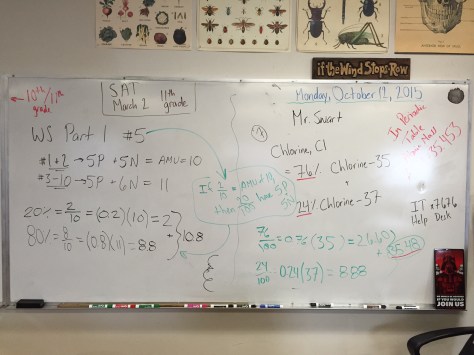 if the Wind Stops-Row
10th/11th
grade
SAT
March 2
11th
grade
WS Part 1 #5
#1+2 → 5P + 5N = AMU = 10
#3-10 → 5P + 6N = 11
20% = 2/10 = (0.2)(10) = 2
80% = 8/10 = (0.8)(11) = 8.8
10.8
then
have 5P
5N
Monday, October 12, 2015
Mr. Swart
Chlorine, Cl
= 76% Chlorine-35
24% Chlorine-37
76/100 = 0.76 (35) = 26.60
+
35.48
24/100 = 0.24 (37) = 8.88
In Periodic
Table
35.453
IT x7676
Help Desk
IF YOU WOULD
JOIN US